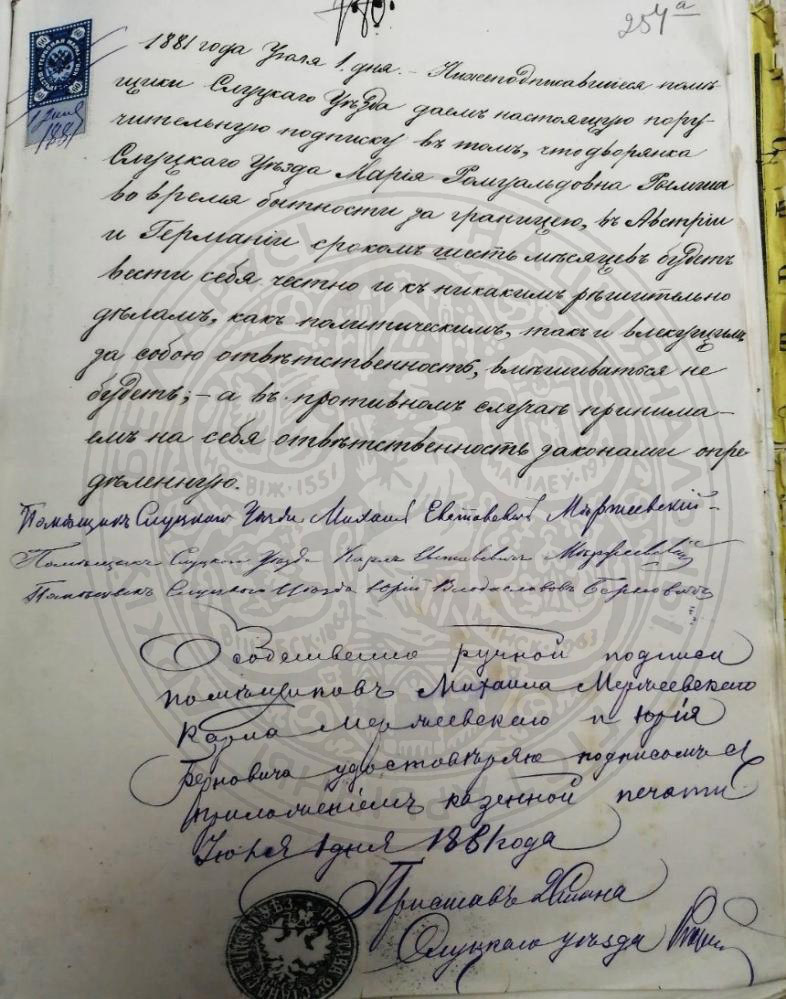 254 а
1881 года Іюля 1 дня. – Нижеподписавшіеся помѣ-
щики Слуцкаго Уѣзда даемъ настоящую пору-
чительную подписку въ томъ, что дворянка
Слуцкаго Уѣзда Марія Ромуальдовна
во время бытности за границею, въ Австріи
и Германіи срокомъ шесть мѣсяцевъ будетъ
вести себя честно и къ никакимъ рѣшительно
дѣламъ, какъ политическимъ, такъ и влекущимъ
за собою отвѣтственность, вмѣшиваться не
будетъ; – а въ противномъ случаѣ принима-
емъ на себя отвѣтственность законами опре-
дѣленную.
Помѣщикъ Слуцкаго Уѣзда Михаилъ
Помѣщикъ Слуцкаго Уѣзда Карлъ
Помѣщикъ Слуцкаго Уѣзда Юрій Владиславовъ
ручной подписи
помѣщиковъ Михаила Мержеевскаго
Карла Мержеевскаго и Юрія
Берновича удостовѣряю подписомъ съ
приложеніемъ казенной печати
Іюля 1 дня 1881 года
Приставъ 2 Стана
Слуцкаго уѣзда
60
1881